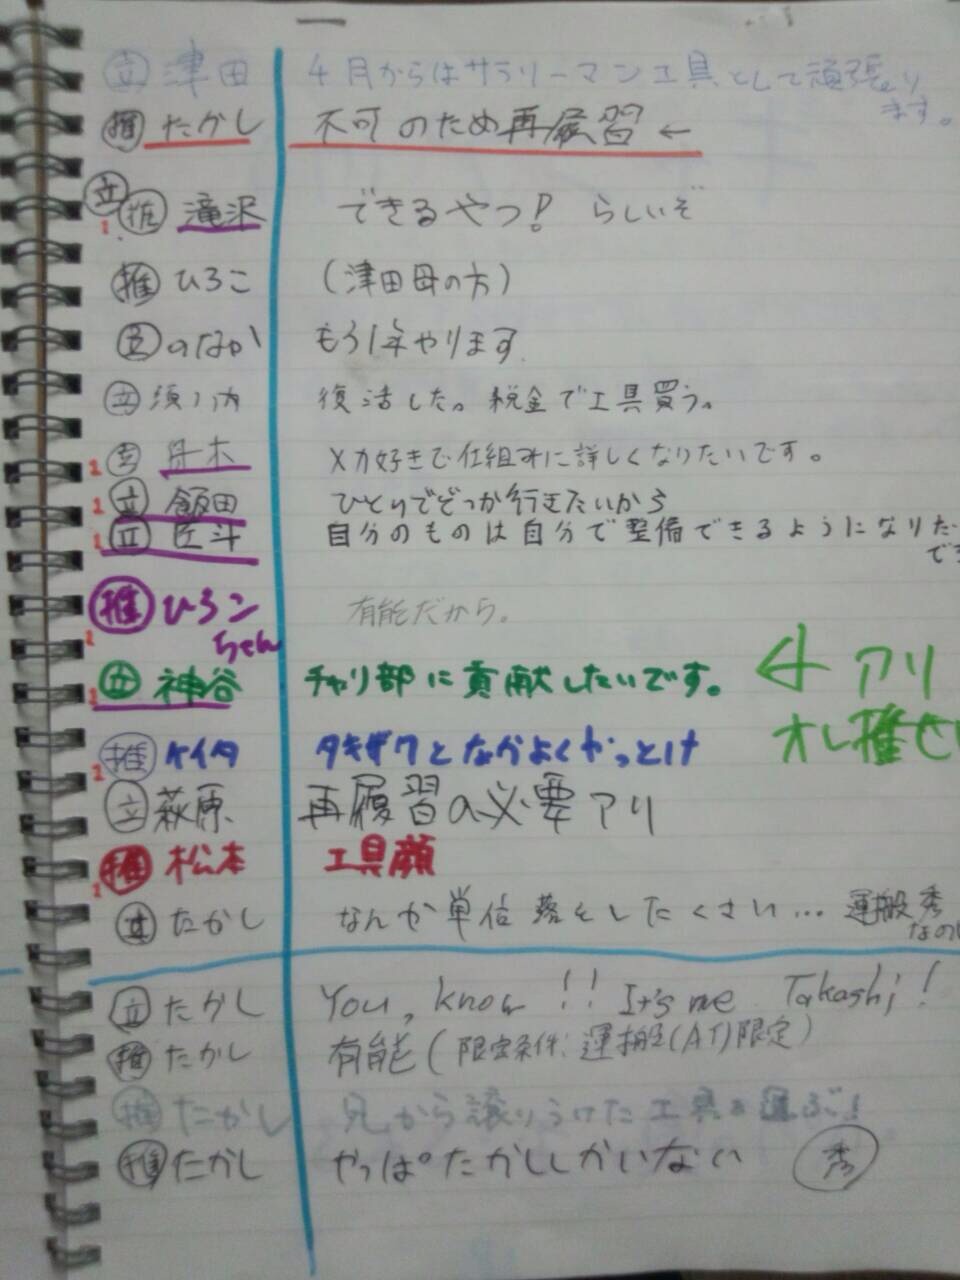 立 津田 4月からはサラリーマン工具として頑張り
ます。
推 たかし 不可のため再履習 ←
立 推 滝沢 できるやつ! らしいぞ
推 ひろこ (津田母の方)
立 のなか もう1年やります
立 須ノ内 復活した。税金で工具買う。
立 舟木 メカ好きで仕組みに詳しくなりたいです。
立 飯田 ひとりでどっか行きたいから
立 匠斗 自分のものは自分で整備できるようになりた
推 ひろこ 有能だから。
ちゃん
立 神谷 チャリ部に貢献したいです。 ← アリ
オレ推せ
推 ケイタ タキザワとなかよくやっとけ
立 萩原 再履習の必要アリ
推 松本 工具顔
たかし なんか単位落としたくさい… 運搬秀
なの
立 たかし You, know!! It's me Takashi!
推 たかし 有能(限定条件:運搬(AT)限定)
推 たかし 兄から譲りうけた工具を運ぶ!
推 たかし やっぱたかししかいない 秀